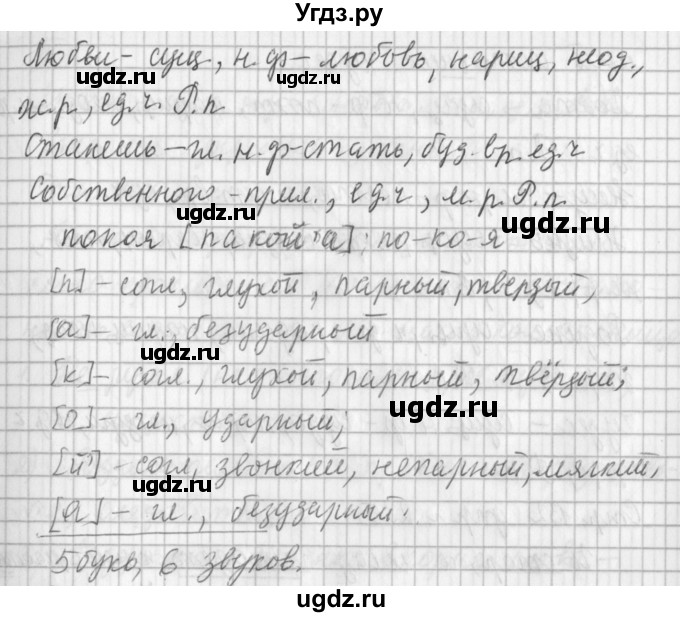 Угдз.ру
Любви - сущ, н.ф - любовь, нариц, неод.,
ж.р, ед.ч. Р.п
Станешь - гл. н.ф-стать, буд.вр. ед.ч
Собственного - прил., ед.ч, м.р. Р.п.
покоя [пакой'а]; по-ко-я
[п] - согл, глухой, парный, твердый,
[а] - гл., безударный
[к] - согл., глухой, парный, твёрдый;
[о] - гл., ударный;
[й'] - согл, звонкий, непарный, мягкий,
[а] - гл., безударный.
5 букв, 6 звуков.
ugdz.ru
ugdz.ru
ugdz.ru
ugdz.ru
ugdz.ru
ugdz.ru
ugdz.ru
ugdz.ru